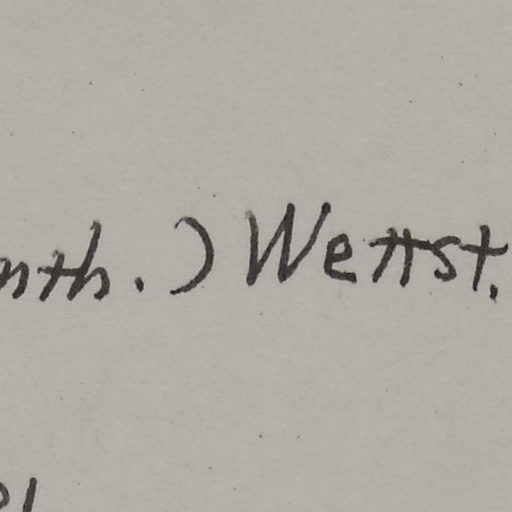 nth.) Wettst.